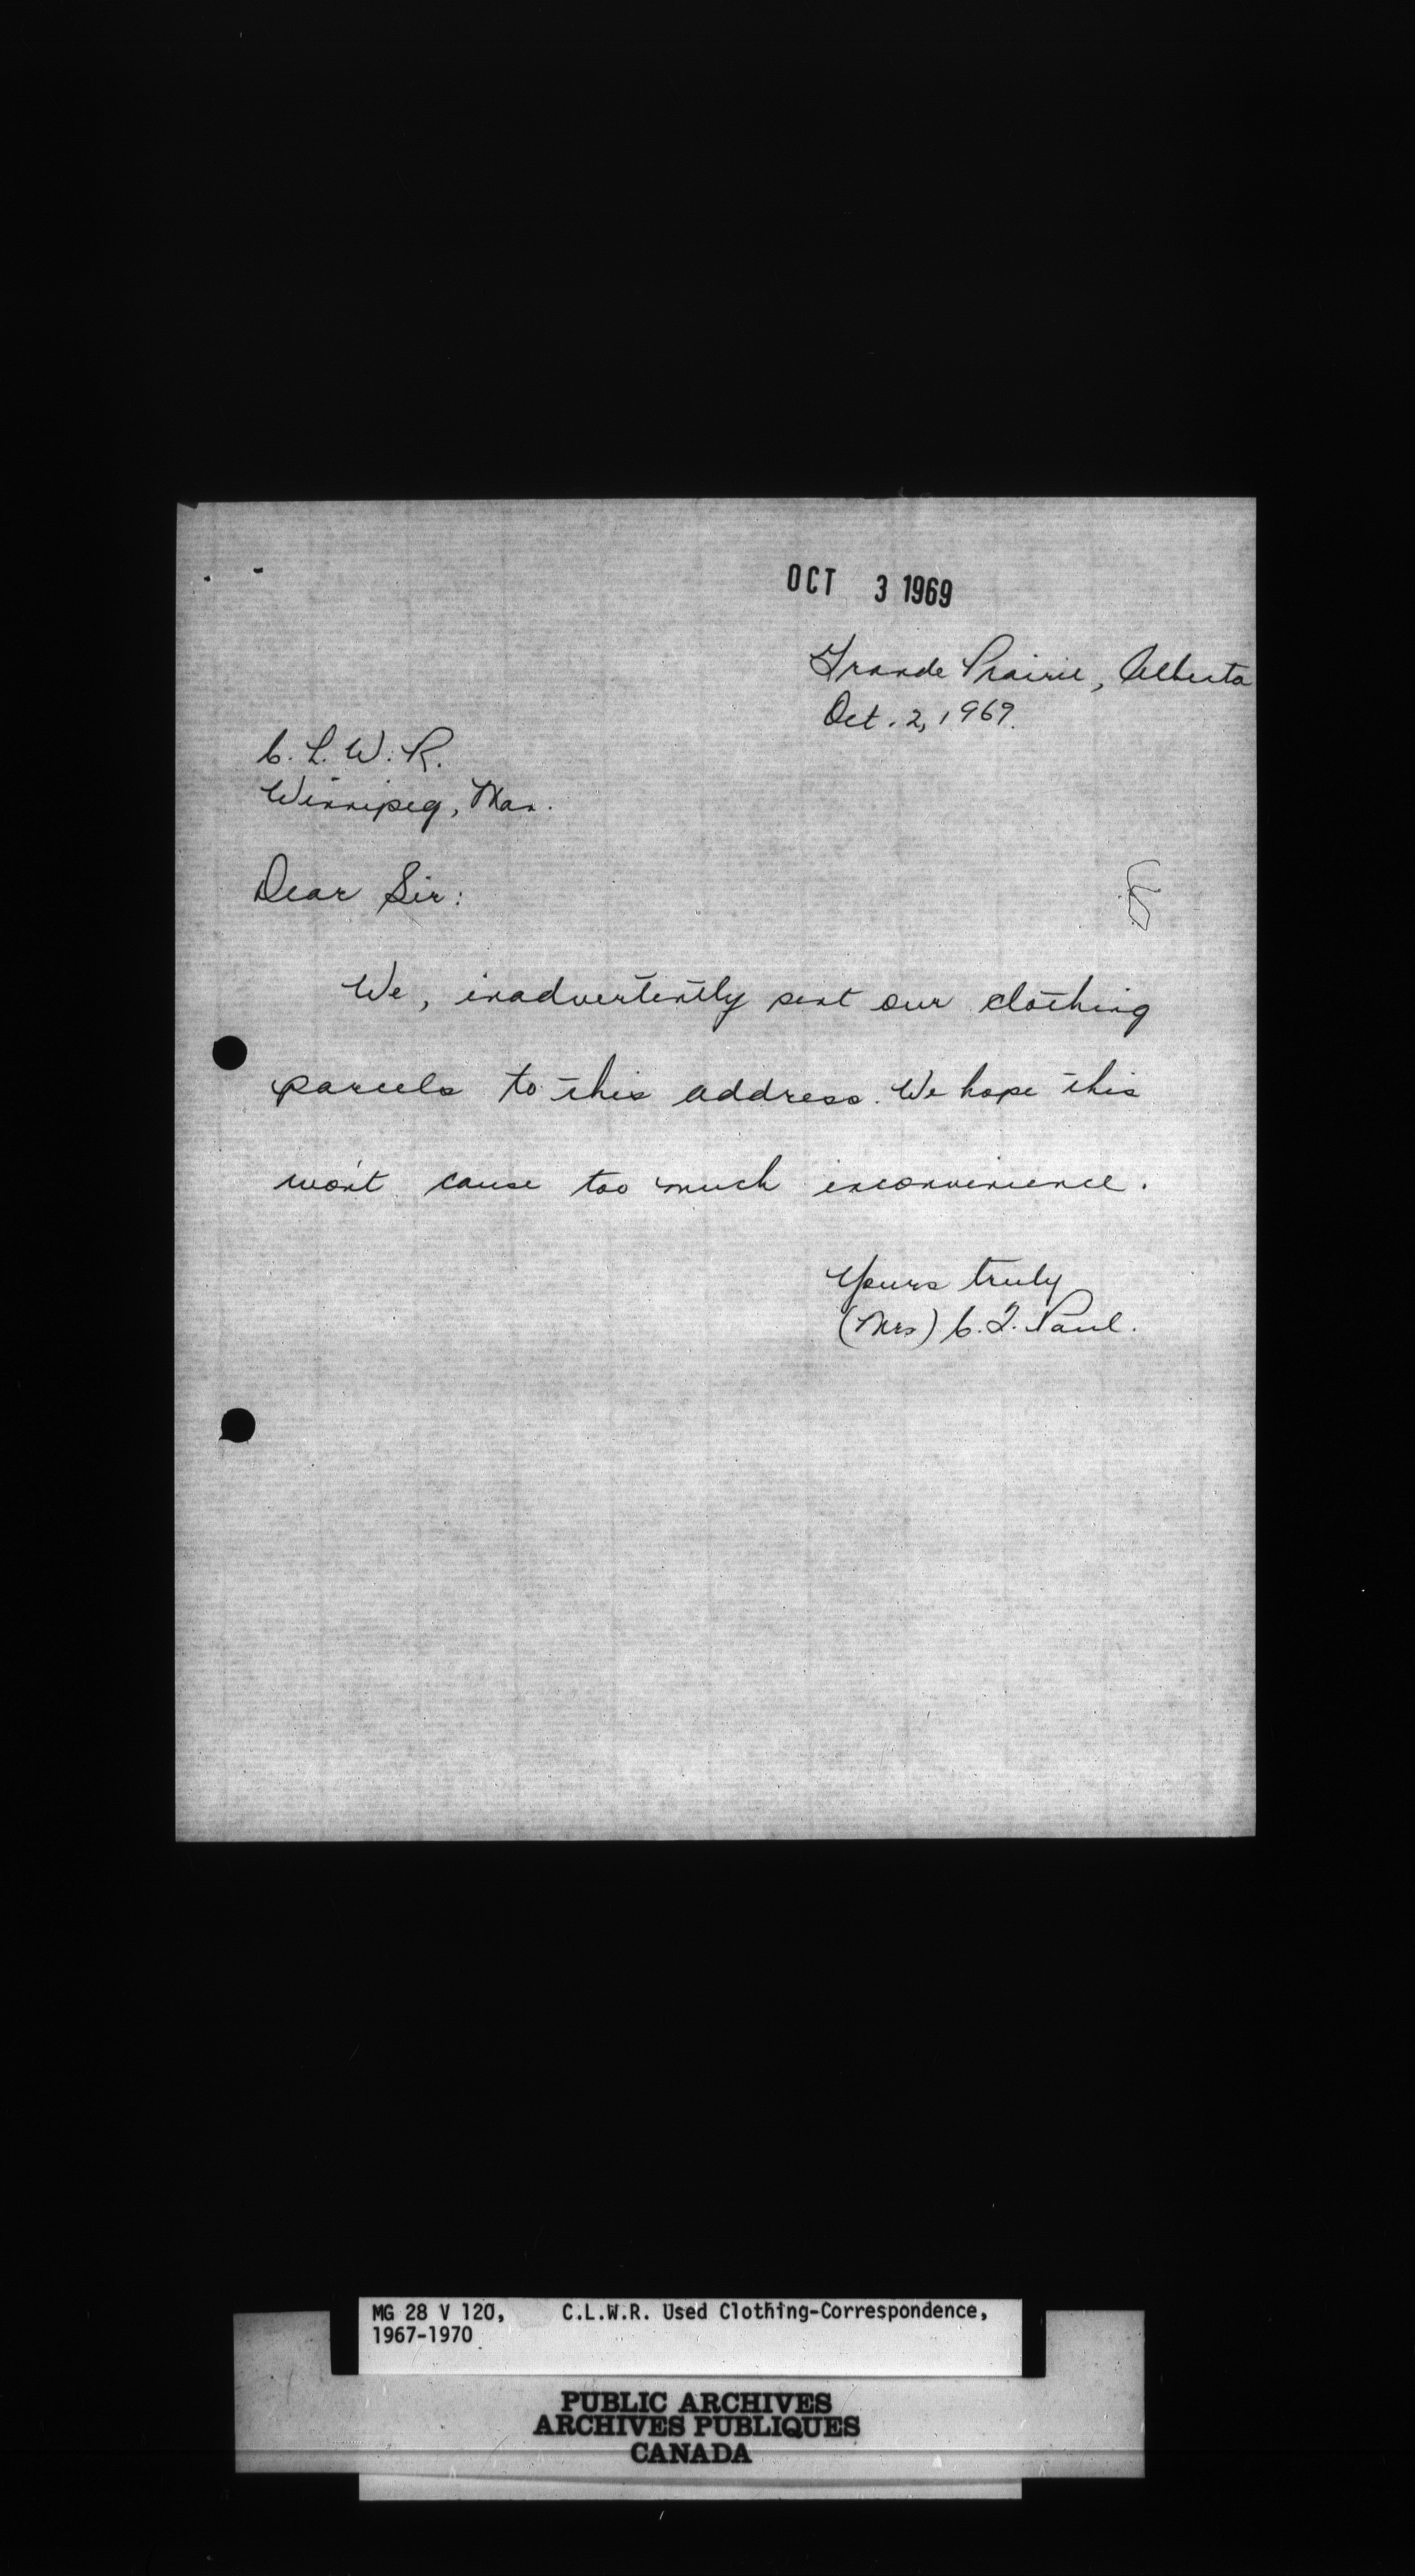 OCT 3 1969
Grande Prairie, Alberta
Oct. 2, 1969.
C. L. W. R.
Winnipeg, Man.
Dear Sir:
We, inadvertently sent our clothing
parcels to this address. We hope this
won't cause too much inconvenience.
Yours truly
(Mrs) C. J. Paul.
MG 28 V 120, C.L.W.R. Used Clothing-Correspondence,
1967-1970
PUBLIC ARCHIVES
ARCHIVES PUBLIQUES
CANADA